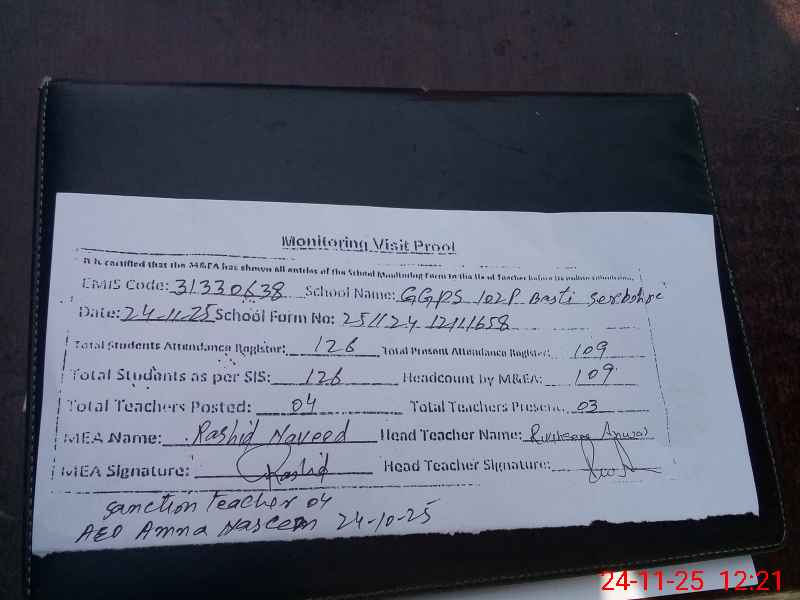 Monitoring Visit Proof
It is certified that the M&EA has shown all entries of the School Monitoring Form to the Head Teacher before its online submission.
EMIS Code: 31330638 School Name: GGPS 102P Basti
Date: 24-11-25 School Form No: 251124 12111658
Total Students Attendance Register: 126 Total Present Attendance Register: 109
Total Students as per SIS: 126 Headcount by M&EA: 109
Total Teachers Posted: 04 Total Teachers Present: 03
MEA Name: Rashid Naveed Head Teacher Name:
MEA Signature: Rashid Head Teacher Signature:
sanction teacher 04
AEO Amna Naseem 24-10-25
24-11-25 12:21